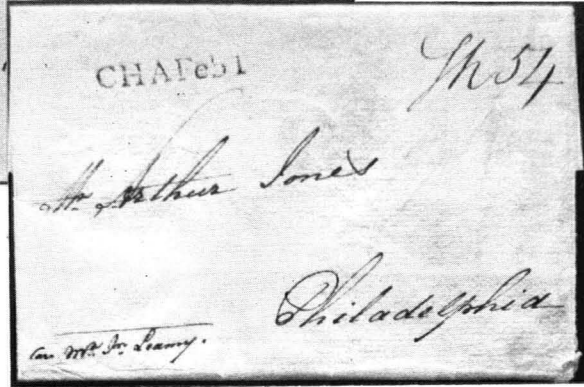 CHA Feb 1
Sh 54
Mr. Arthur Jones
Philadelphia
Care Mr. Jn. Leamy.